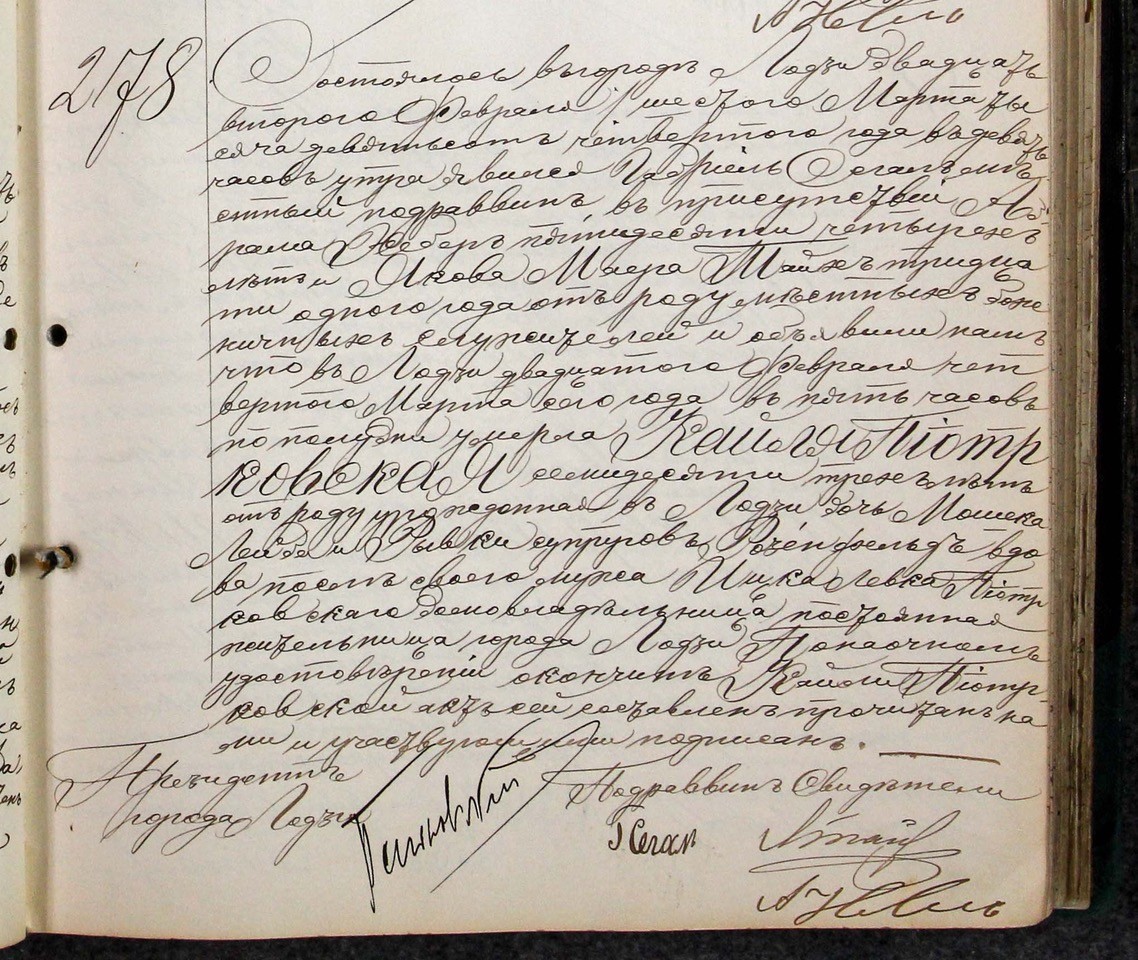 278
Состоялось въ городѣ Лодзи двадцать
второго Февраля / шестого Марта ты
сяча девятьсотъ четвертого года въ девять
часовъ утра явился Габріель Сегалъ мѣ
стный подраввинъ въ присутствіи Аб
рама Хеберъ пятидесяти четырехъ
лѣтъ и Якова Маера Тайхъ тридца
ти одного года отъ роду мѣстныхъ бож
ничныхъ служителей и объявили намъ
что въ Лодзи двадцатого Февраля чет
вертого Марта сего года въ пять часовъ
по полудни умерла Кайля Піотр
ковская семидесяти трехъ лѣтъ
отъ роду урожденная въ Лодзи дочь Мошека
Лейба и Рывки супруговъ Розенфельдъ вдо
ва послѣ своего мужа Ицка Левка Піотр
ковскаго домовладѣльница постоянная
жительница города Лодзи По наочномъ
удостовѣреніи о кончинѣ Кайли Піотр
ковской актъ сей составленъ прочитанъ на
ми и участвующими подписанъ.
Президентъ
города Лодзи
Подраввинъ Свидѣтели
Г Сегал